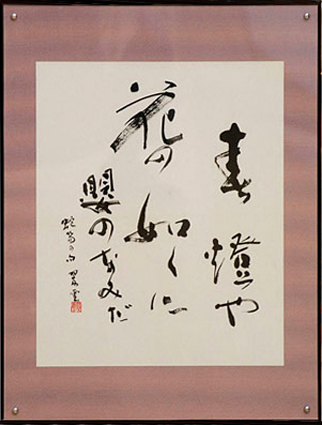 春燈や
花の如くに
嬰のなみだ
蛇笏の句